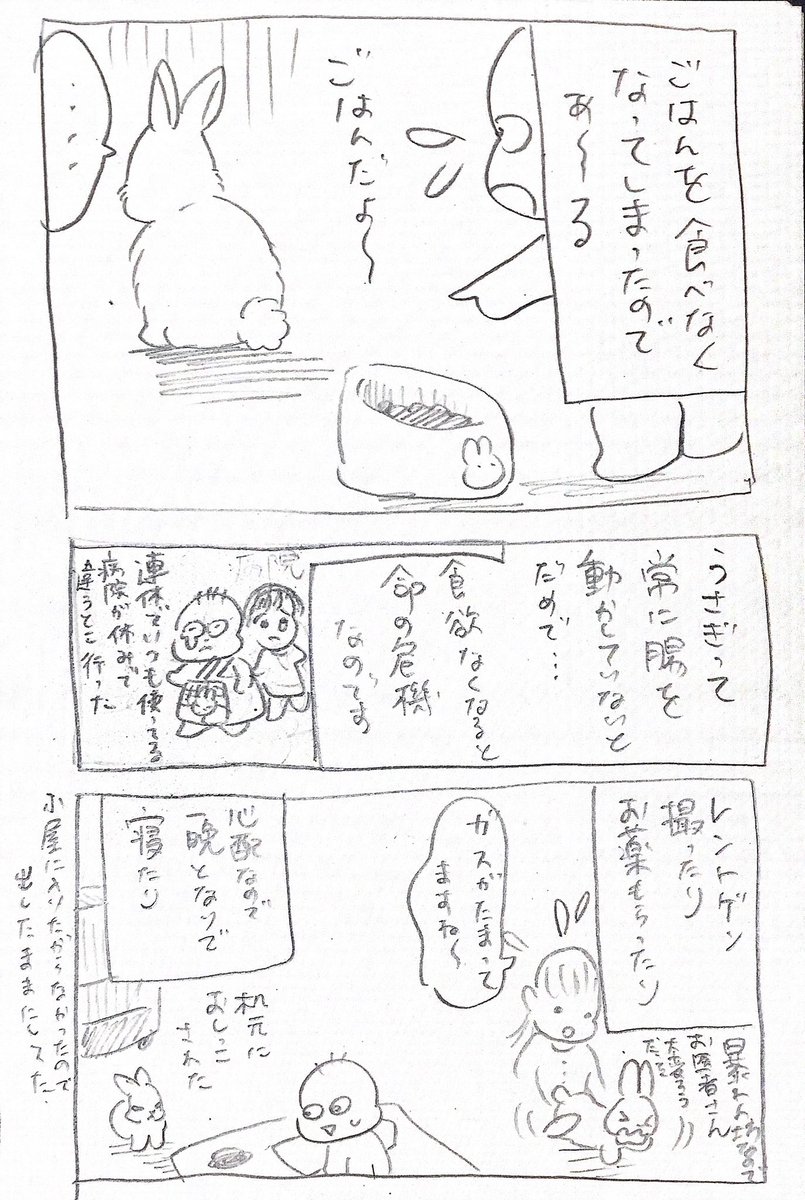 ごはんを食べなく
なってしまったので
あ〜る
ごはんだよ〜
・・・・
うさぎって
常に腸を
動かしていないと
だめで…
食欲なくなると
命の危機
なのです
病院
連休でいつも使ってる
病院が休みで
違うとこ行った
レントゲン
撮ったり
お薬もらったり
暴れん坊なので
お医者さん
大変そう
だった
ガスがたまって
ますね〜
心配なので
一晩となりで
寝たり
枕元に
おしっこ
された
小屋に入りたがらなかったので
出したままにしてた